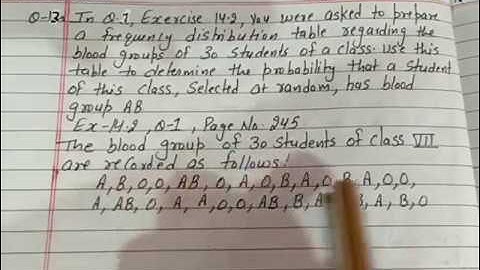 Q-12: In Q.1, Exercise 14.2, you were asked to prepare
a frequency distribution table regarding the
blood groups of 30 students of a class. Use this
table to determine the probability that a student
of this class, selected at random, has blood
group AB
Ex-14.2, Q-1, Page No. 245
The blood group of 30 students of class VII
are recorded as follows:
A, B, O, O, AB, O, A, O, B, A, O, B, A, O, O,
A, AB, O, A, A, O, O, AB, B, A, B, A, B, O